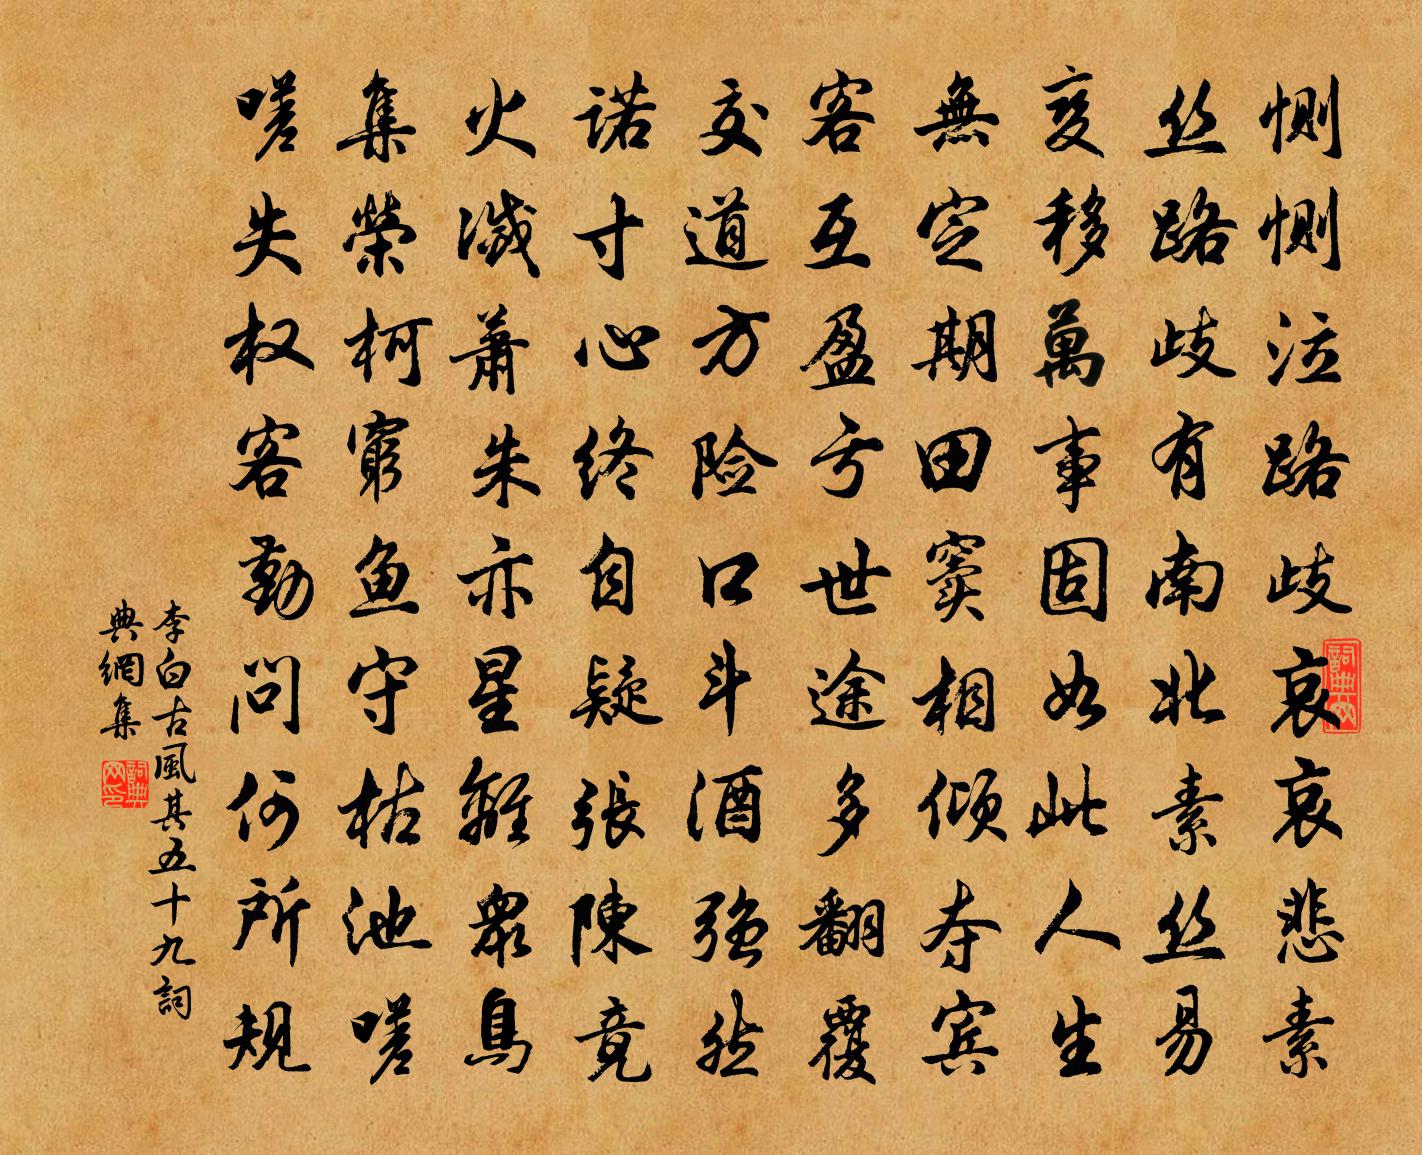 恻恻泣路歧哀哀悲素
丝路歧有南北素丝易
变移萬事固如此人生
無定期田竇相倾夺宾
客互盈亏世途多翻覆
交道方险口斗酒强然
诺寸心终自疑張陳竟
火滅蕭朱亦星離眾鳥
集榮柯窮鱼守枯池嗟
嗟失权客勤问何所规
李白古風其五十九詞
典網集
詞典网
詞典网印